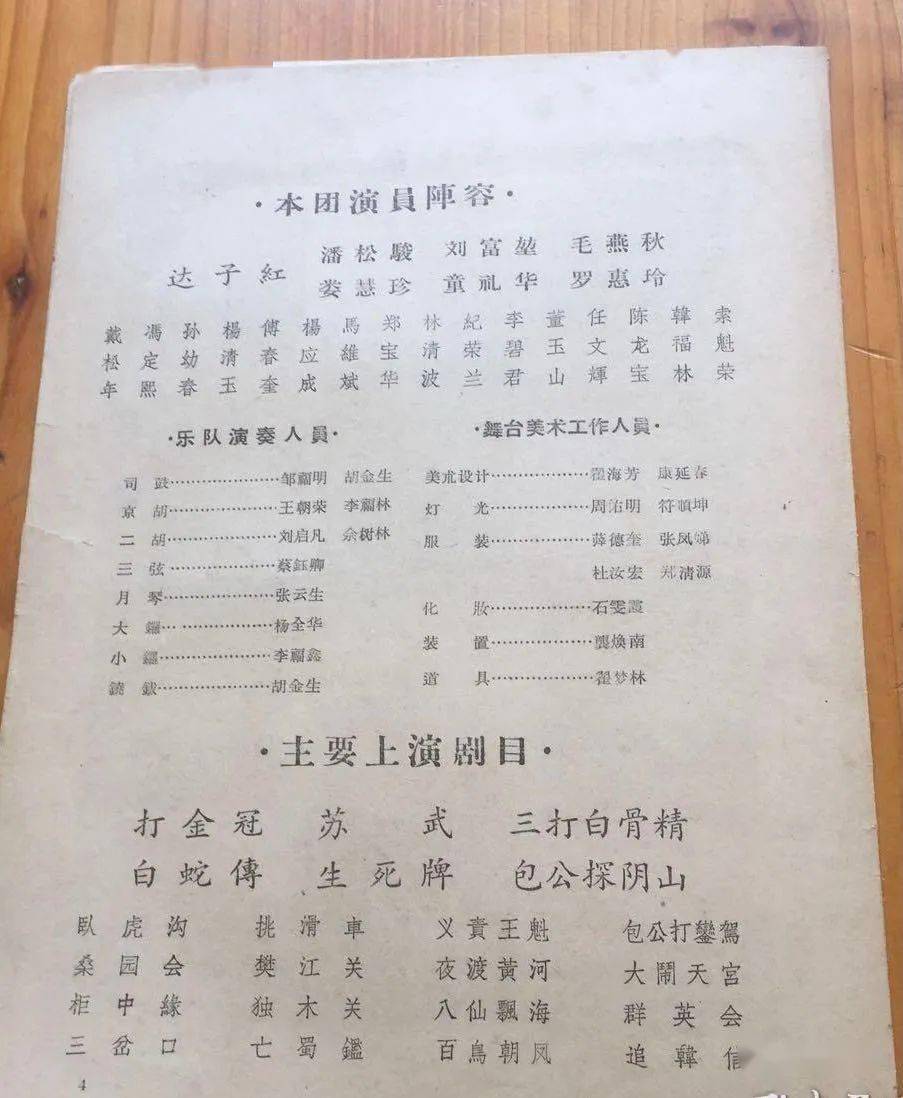 ·本团演員陣容·
达子紅
潘松駿 刘富堃 毛燕秋
娄慧珍 童礼华 罗惠玲
戴 馮 孙 楊 傅 楊 馬 郑 林 紀 李 董 任 陈 韓 索
松 定 幼 清 春 应 維 宝 清 荣 碧 玉 文 龙 福 魁
年 熙 春 玉 奎 成 斌 华 波 兰 君 山 輝 宝 林 荣
·乐队演奏人員·
司 鼓…………………邹福明 胡金生
京 胡…………………王朝荣 李福林
二 胡…………………刘启凡 余树林
三 弦…………………蔡鈺卿
月 琴…………………张云生
大 鑼…………………杨全华
小 鑼…………………李福鑫
鐃 鈸…………………胡金生
·舞台美术工作人員·
美朮设计………………翟海芳 康延春
灯 光………………周佑明 符頤坤
服 装………………薛德奎 张凤娣
杜汝宏 郑清源
化 妝………………石雯霞
装 置………………龔煥南
道 具………………翟梦林
·主要上演剧目·
打金冠 苏武 三打白骨精
白蛇傳 生死牌 包公探阴山
臥虎沟 挑滑車 义責王魁 包公打鑾駕
桑园会 樊江关 夜渡黃河 大鬧天宮
柜中緣 独木关 八仙飄海 群英会
三岔口 亡蜀鑑 百鳥朝凤 追韓信
4